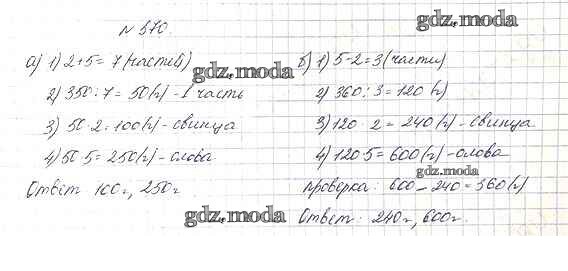 gdz.moda
N 570.
а) 1) 2+5= 7 (частей)
gdz.moda
2) 350:7=50(г)-1 часть
3) 50·2=100(г)-свинца
4) 50·5=250(г)-олова
Ответ 100г, 250г
б) 1) 5-2=3 (части)
2) 360:3=120 (г)
3) 120·2=240(г)-свинца
4) 120·5=600(г)-олова
gdz.moda
проверка: 600-240=360(г)
gdz.moda
Ответ: 240г, 600г.